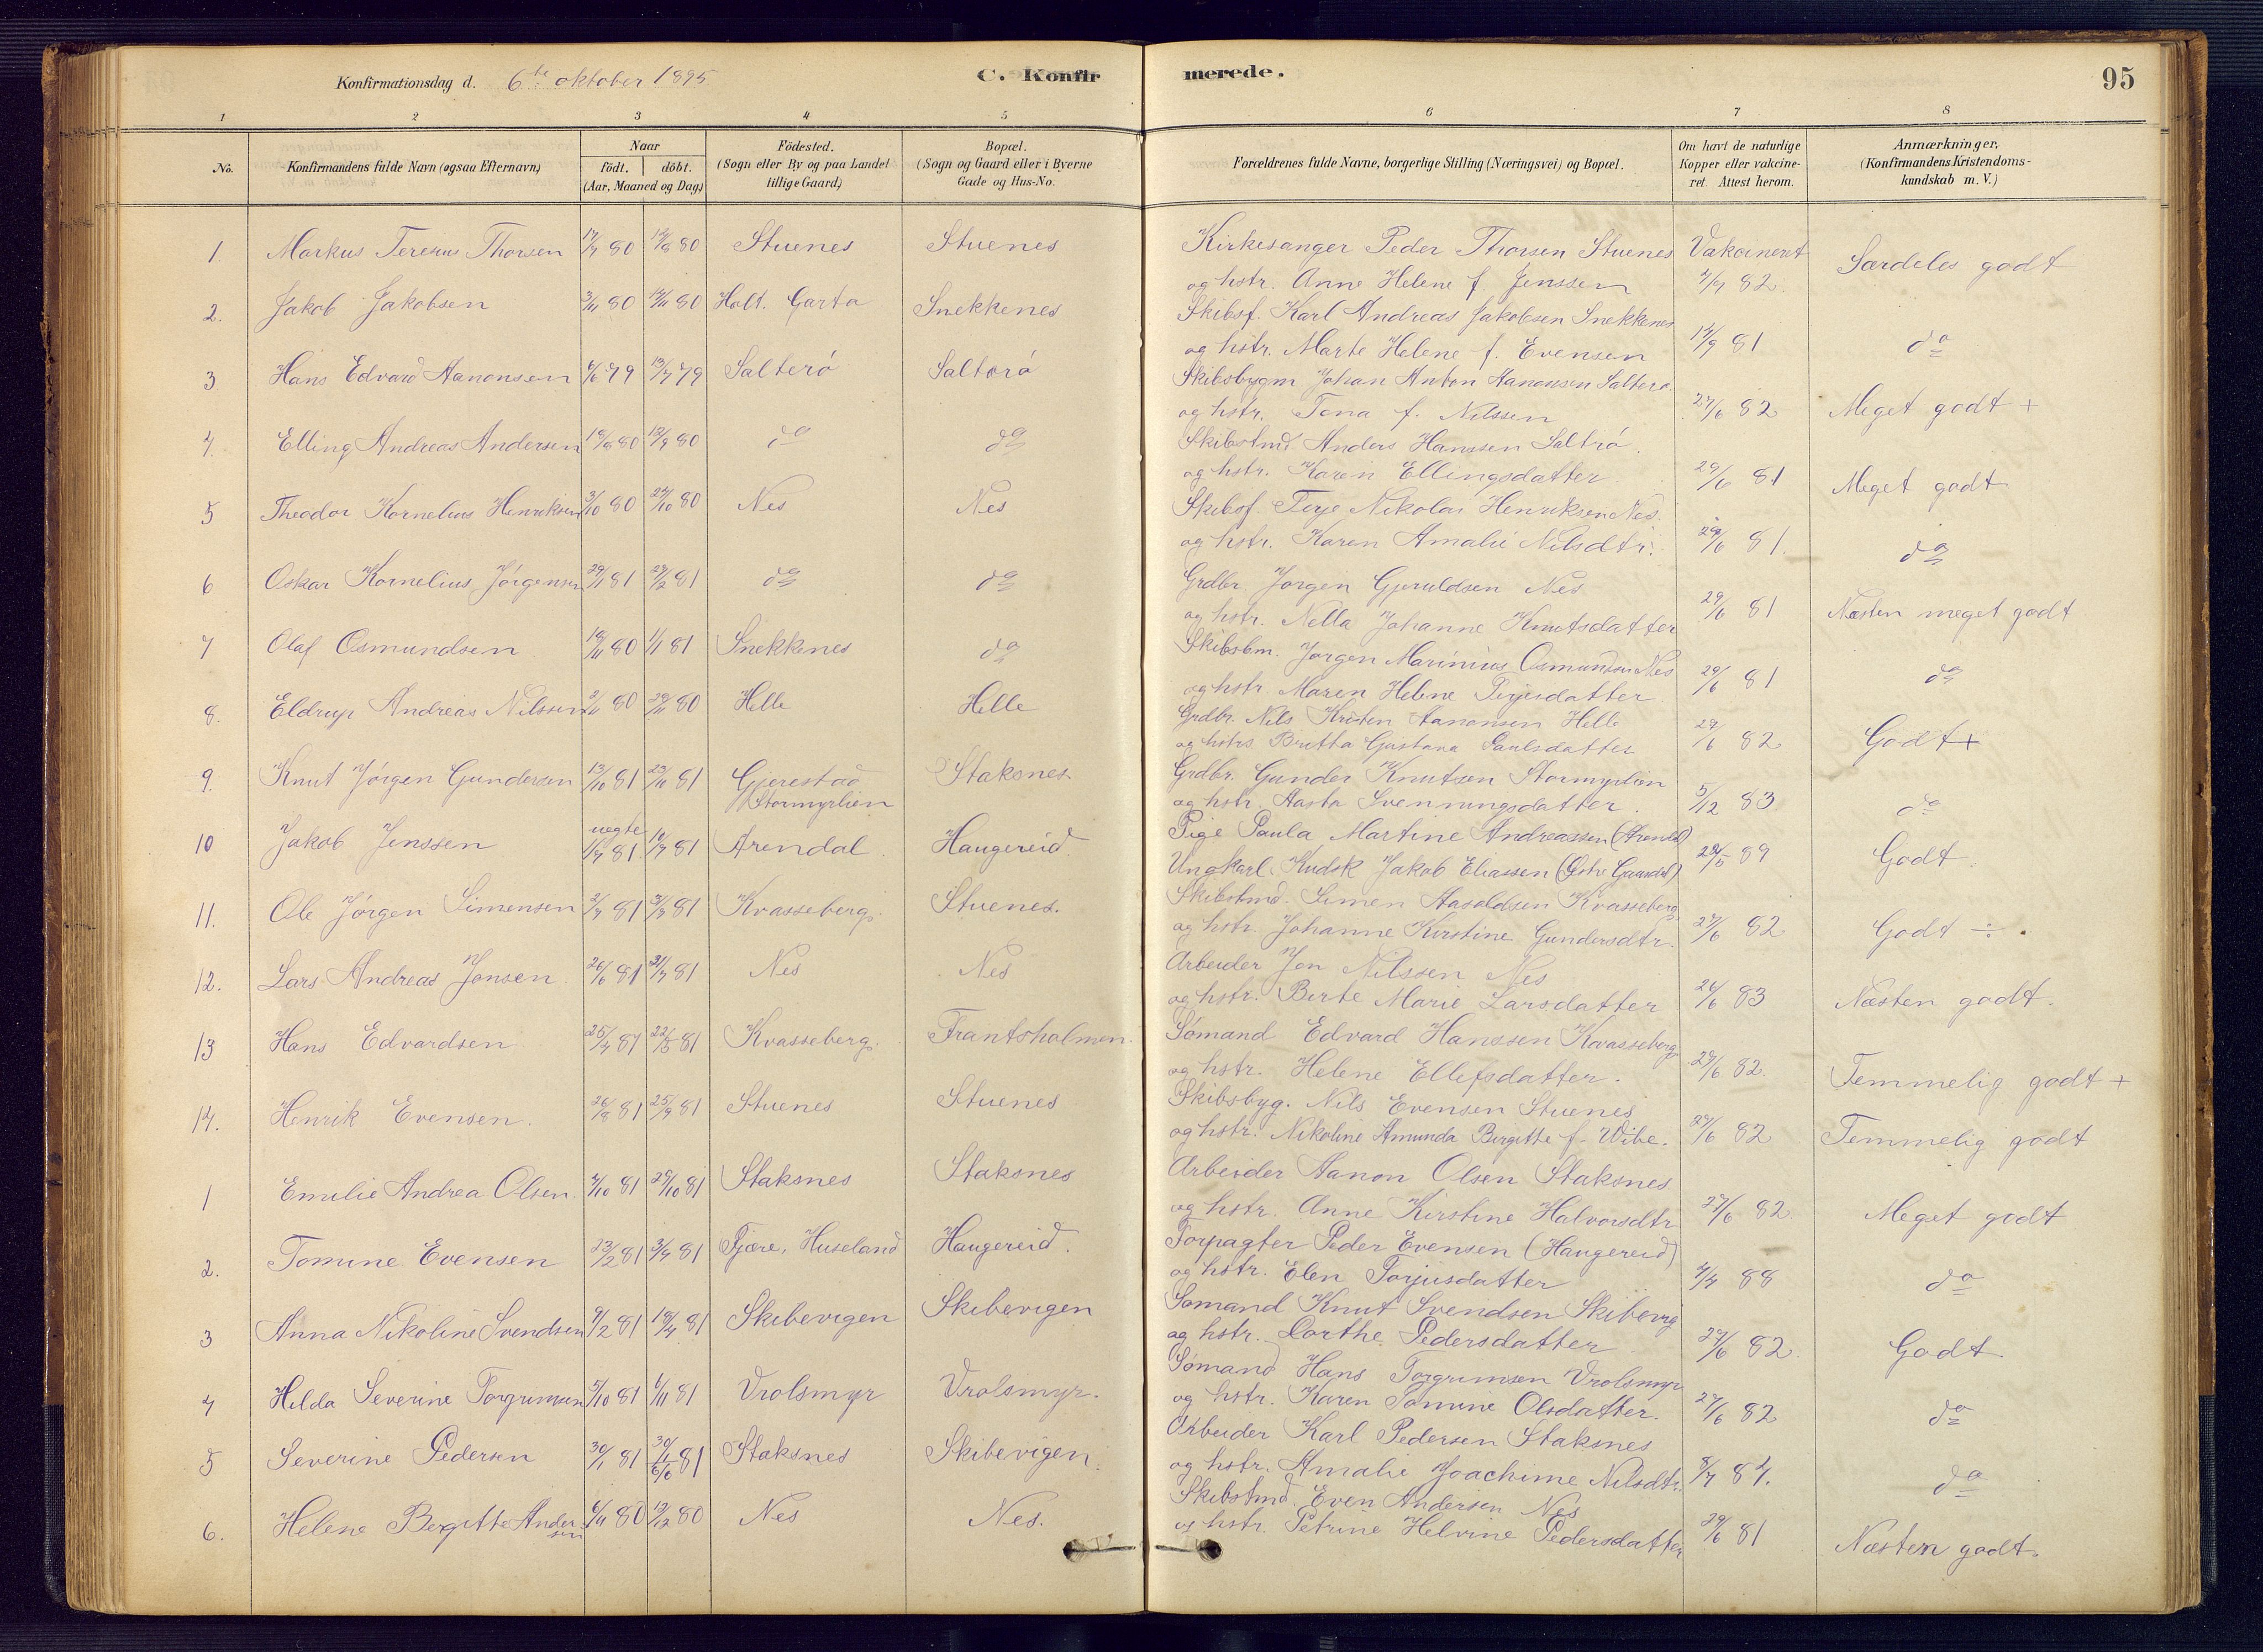 Konfirmationsdag d. 6te oktober 1895
C. Konfirmerede.
95
1 2 3 4 5 6 7 8
No. Konfirmandens fulde Navn (ogsaa Efternavn) Naar født. døbt. (Aar, Maaned og Dag) Födested. (Sogn eller By og paa Landet tillige Gaard) Bopæl. (Sogn og Gaard eller i Byerne Gade og Hus-No. Forældrenes fulde Navne, borgerlige Stilling (Næringsvei) og Bopæl. Om havt de naturlige Kopper eller vakcineret. Attest herom. Anmærkninger, (Konfirmandens Kristendomskundskab m. V.)
1 Markus Teresius Thorsen 17/7 80 Stuenes Stuenes Kirkesanger Peder Thorsen Stuenes Vakcineret Særdeles godt
og hstr. Anne Helene f. Jenssen 4/9 82.
2. Jakob Jakobsen 3/11 80 14/11 80 Holt. Garta Snekkenes Skibsf. Karl Andreas Jakobsen Snekkenes
og hstr. Marte Helene f. Evensen 14/9 81 do
3 Hans Edvard Aanonsen 4/6 79 13/7 79 Salterö Salterö Skibsbygm Johan Anton Aanonsen Salterö
og hstr. Tona f. Nilssen 27/6 82 Meget godt +
4. Elling Andreas Andersen 18/8 80 12/9 80 do do Skibstmd Anders Hanssen Saltrö.
og hstr. Karen Ellingsdatter 29/6 81 Meget godt
5 Theodor Kornelius Henriksen 3/10 80 24/10 80 Nes Nes Skibsf. Terje Nikolai Henriksen Nes.
og hstr. Karen Amalie Nilsdtr. 29/6 81. do
6 Oskar Kornelius Jörgensen 29/1 81 27/2 81 do do Grdbr. Jörgen Gjeruldsen Nes
og hstr. Nella Johanne Knutsdatter 29/6 81 Næsten meget godt
7 Olaf Osmundsen 18/11 80 1/1 81 Snekkenes do Skibsbm. Jörgen Marinius Osmundsen Nes
og hstr. Maren Helene Terjesdatter 29/6 81 do
8. Eldrup Andreas Nilssen 2/11 80 28/11 80 Helle Helle Grdbr. Nils Kristen Aanonsen Helle
og hstr. Britta Gustava Paulsdatter 27/6 82 Godt +
9. Knut Jörgen Gundersen 13/10 81 23/11 81 Gjerestad Stormyrlien Staksnes Grdbr. Gunder Knutsen Stormyrlien
og hstr. Aasta Svenningsdatter. 5/12 83 do
10 Jakob Jenssen uegte 1/7 81 10/7 81 Arendal Haugereid. Pige Paula Martine Andreassen (Arendal)
Ungkarl. Kudsk Jakob Eliassen 29/5 89 Godt.
11. Ole Jörgen Simensen 2/7 81 31/7 81 Kvasseberg. Stuenes. Skibstmd. Simen Aasoldsen Kvasseberg
og hstr. Johanne Kirstine Gundersdtr. 27/6 82 Godt ÷.
12. Lars Andreas Jonsen 26/6 81 31/7 81 Nes Nes Arbeider Jon Nilssen Nes
og hstr. Berte Marie Larsdatter 26/6 83 Næsten godt.
13 Hans Edvardsen 25/4 81 22/5 81 Kvasseberg. Frantsholmen. Sömand Edvard Hanssen Kvasseberg
og hstr. Helene Ellefsdatter. 27/6 82. Temmelig godt +
14. Henrik Evensen. 26/8 81 25/9 81 Stuenes Stuenes Skibsbyg. Nils Evensen Stuenes
og hstr. Nikoline Amunda Birgitte f. Wibe. 27/6 82 Temmelig godt
1 Emilie Andrea Olsen. 4/10 81 25/10 81 Staksnes Staksnes Arbeider Aanon Olsen Staksnes
og hstr. Anne Kirstine Halvorsdtr 27/6 82. Meget godt
2. Tomine Evensen 23/2 81 3/4 81 Fjære, Huseland Haugereid. Forpagter Peder Evensen (Haugereid)
og hstr. Elen Torjusdatter 4/4 88 do
3 Anna Nikoline Svendsen 9/2 81 18/4 81 Skibevigen Skibevigen Sömand Knut Svendsen Skibevig
og hstr. Dorthe Pedersdatter 27/6 82. Godt.
4 Hilda Severine Torgrimsen 5/10 81 1/11 81 Vrolsmyr Vrolsmyr. Sömand Hans Torgrimsen Vrolsmyr
og hstr. Karen Tomine Olsdatter. 27/6 82 do
5 Severine Pedersen 30/1 81 30/1 6/6 81 Staksnes Skibevigen. Arbeider Karl Pedersen Staksnes
og hstr. Amalie Joachime Nilsdtr. 8/7 84. do
6. Helene Bergitte Andersen 6/11 80 12/12 80 Nes Nes. Skibstmd. Even Andersen Nes
og hstr. Petrine Helvine Pedersdatter 29/6 81 Næsten godt.